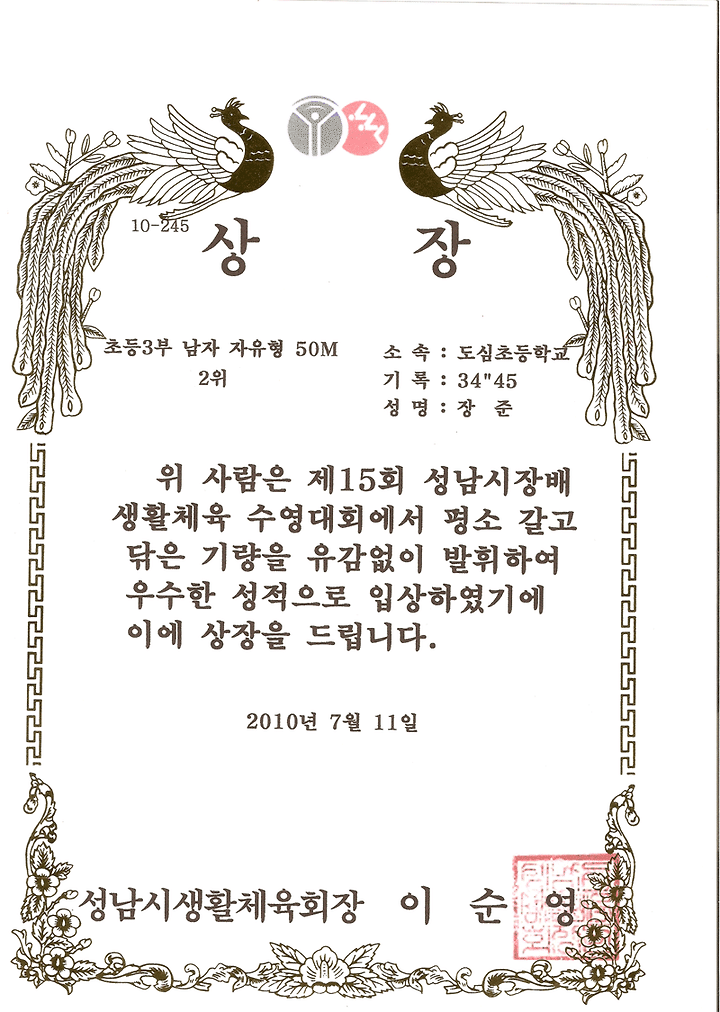 10-245
상 장
초등3부 남자 자유형 50M
2위
소 속 : 도심초등학교
기 록 : 34"45
성 명 : 장 준
위 사람은 제15회 성남시장배
생활체육 수영대회에서 평소 갈고
닦은 기량을 유감없이 발휘하여
우수한 성적으로 입상하였기에
이에 상장을 드립니다.
2010년 7월 11일
성남시생활체육회장 이 순 영